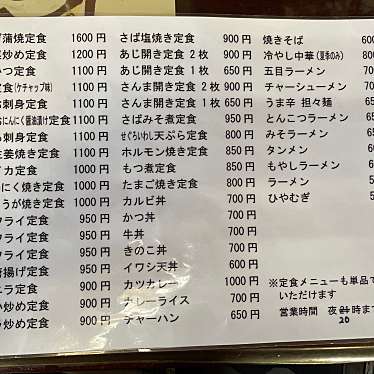 蒲焼定食 1600円
炒め定食 1200円
かつ定食 1100円
定食(ケチャップ味) 1100円
刺身定食 1100円
にんにく醤油漬け定食 1100円
刺身定食 1100円
生姜焼き定食 1100円
イカ定食 1000円
にく焼き定食 1000円
うが焼き定食 1000円
フライ定食 950円
フライ定食 950円
フライ定食 950円
唐揚げ定食 950円
ニラ定食 950円
炒め定食 900円
炒め定食 900円
さば塩焼き定食 900円
あじ開き定食 2枚 900円
あじ開き定食 1枚
さんま開き定食 2枚 900円
さんま開き定食 1枚 650円
さばみそ煮定食 950円
せぐろいわし天ぷら定食 700円
ホルモン焼き定食 900円
もつ煮定食 800円
たまご焼き定食 800円
カルビ丼 700円
かつ丼 700円
牛丼 700円
きのこ丼 700円
イワシ天丼 600円
カツカレー 1000円
カレーライス 700円
チャーハン 650円
焼きそば
冷やし中華(夏季のみ)
五目ラーメン
チャーシューメン
うま辛 担々麺
とんこつラーメン
みそラーメン
タンメン
もやしラーメン
ラーメン
ひやむぎ
※定食メニューも単品で
いただけます
営業時間 夜 時まで
20